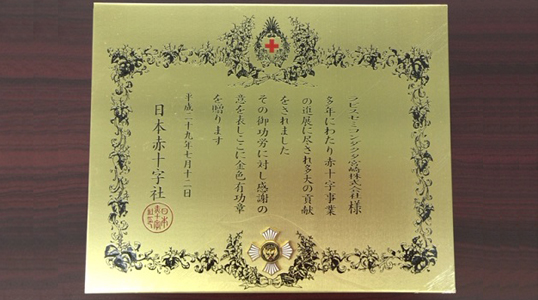 ラピスセミコンダクタ宮崎株式会社様
多年にわたり赤十字事業
の進展に尽され多大の貢献
をされました
その御功労に対し感謝の
意を表しここに金色有功章
を贈ります
平成二十九年七月十二日
日本赤十字社
日本
赤十字
社印